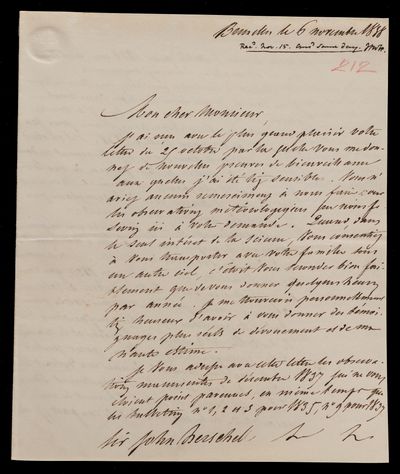 Bruxelles le 6 novembre 1838
Recd. Nov. 15. Ansd same day. JFWH.
212
Mon cher Monsieur,
J'ai reçu avec le plus grand plaisir votre
lettre du 25 octobre par laquelle vous me don-
nez de nouvelles preuves de bienveillance
aux quelles j'ai été très sensible. Vous n'
aviez aucuns remerciemens à nous faire pour
les observations météorologiques que nous f
avons ici à votre demande. Quand dans
le seul intérêt de la science, vous consentiez
à vous transporter avec votre famille sous
un autre ciel, c'était vous seconder bien fai-
blement que de vous donner quelques heures
par année. Je me trouverais personnellement
très heureux d'avoir à vous donner des témoi-
gnages plus réels de dévouement et de ma
haute estime.
Je vous adresse avec cette lettre les observa-
tions manuscrites de décembre 1837 qui ne vous
étaient point parvenues, en même temps que
les bulletins n° 1, 2 et 3 pour 1835, n° 9 pour 1837
Sir John Herschel